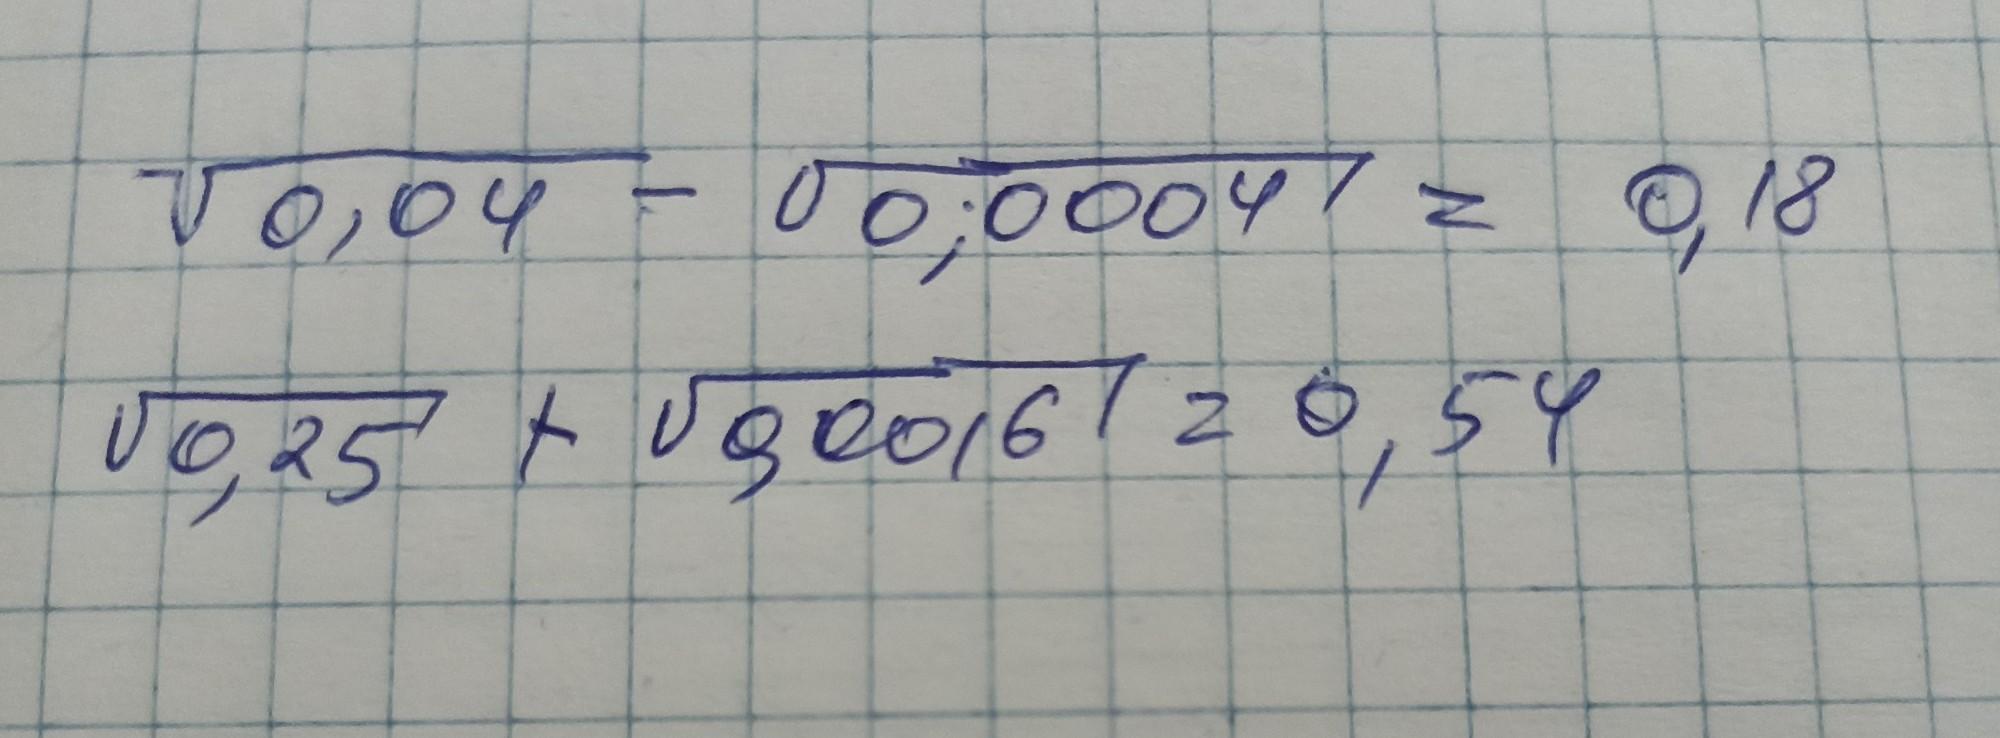 √0,04 - √0,0004 = 0,18
√0,25 + √0,0016 = 0,54